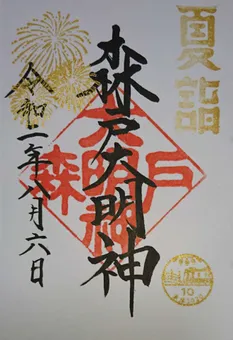 夏詣
森戸大明神
令和二年八月六日
森戸大明神
10